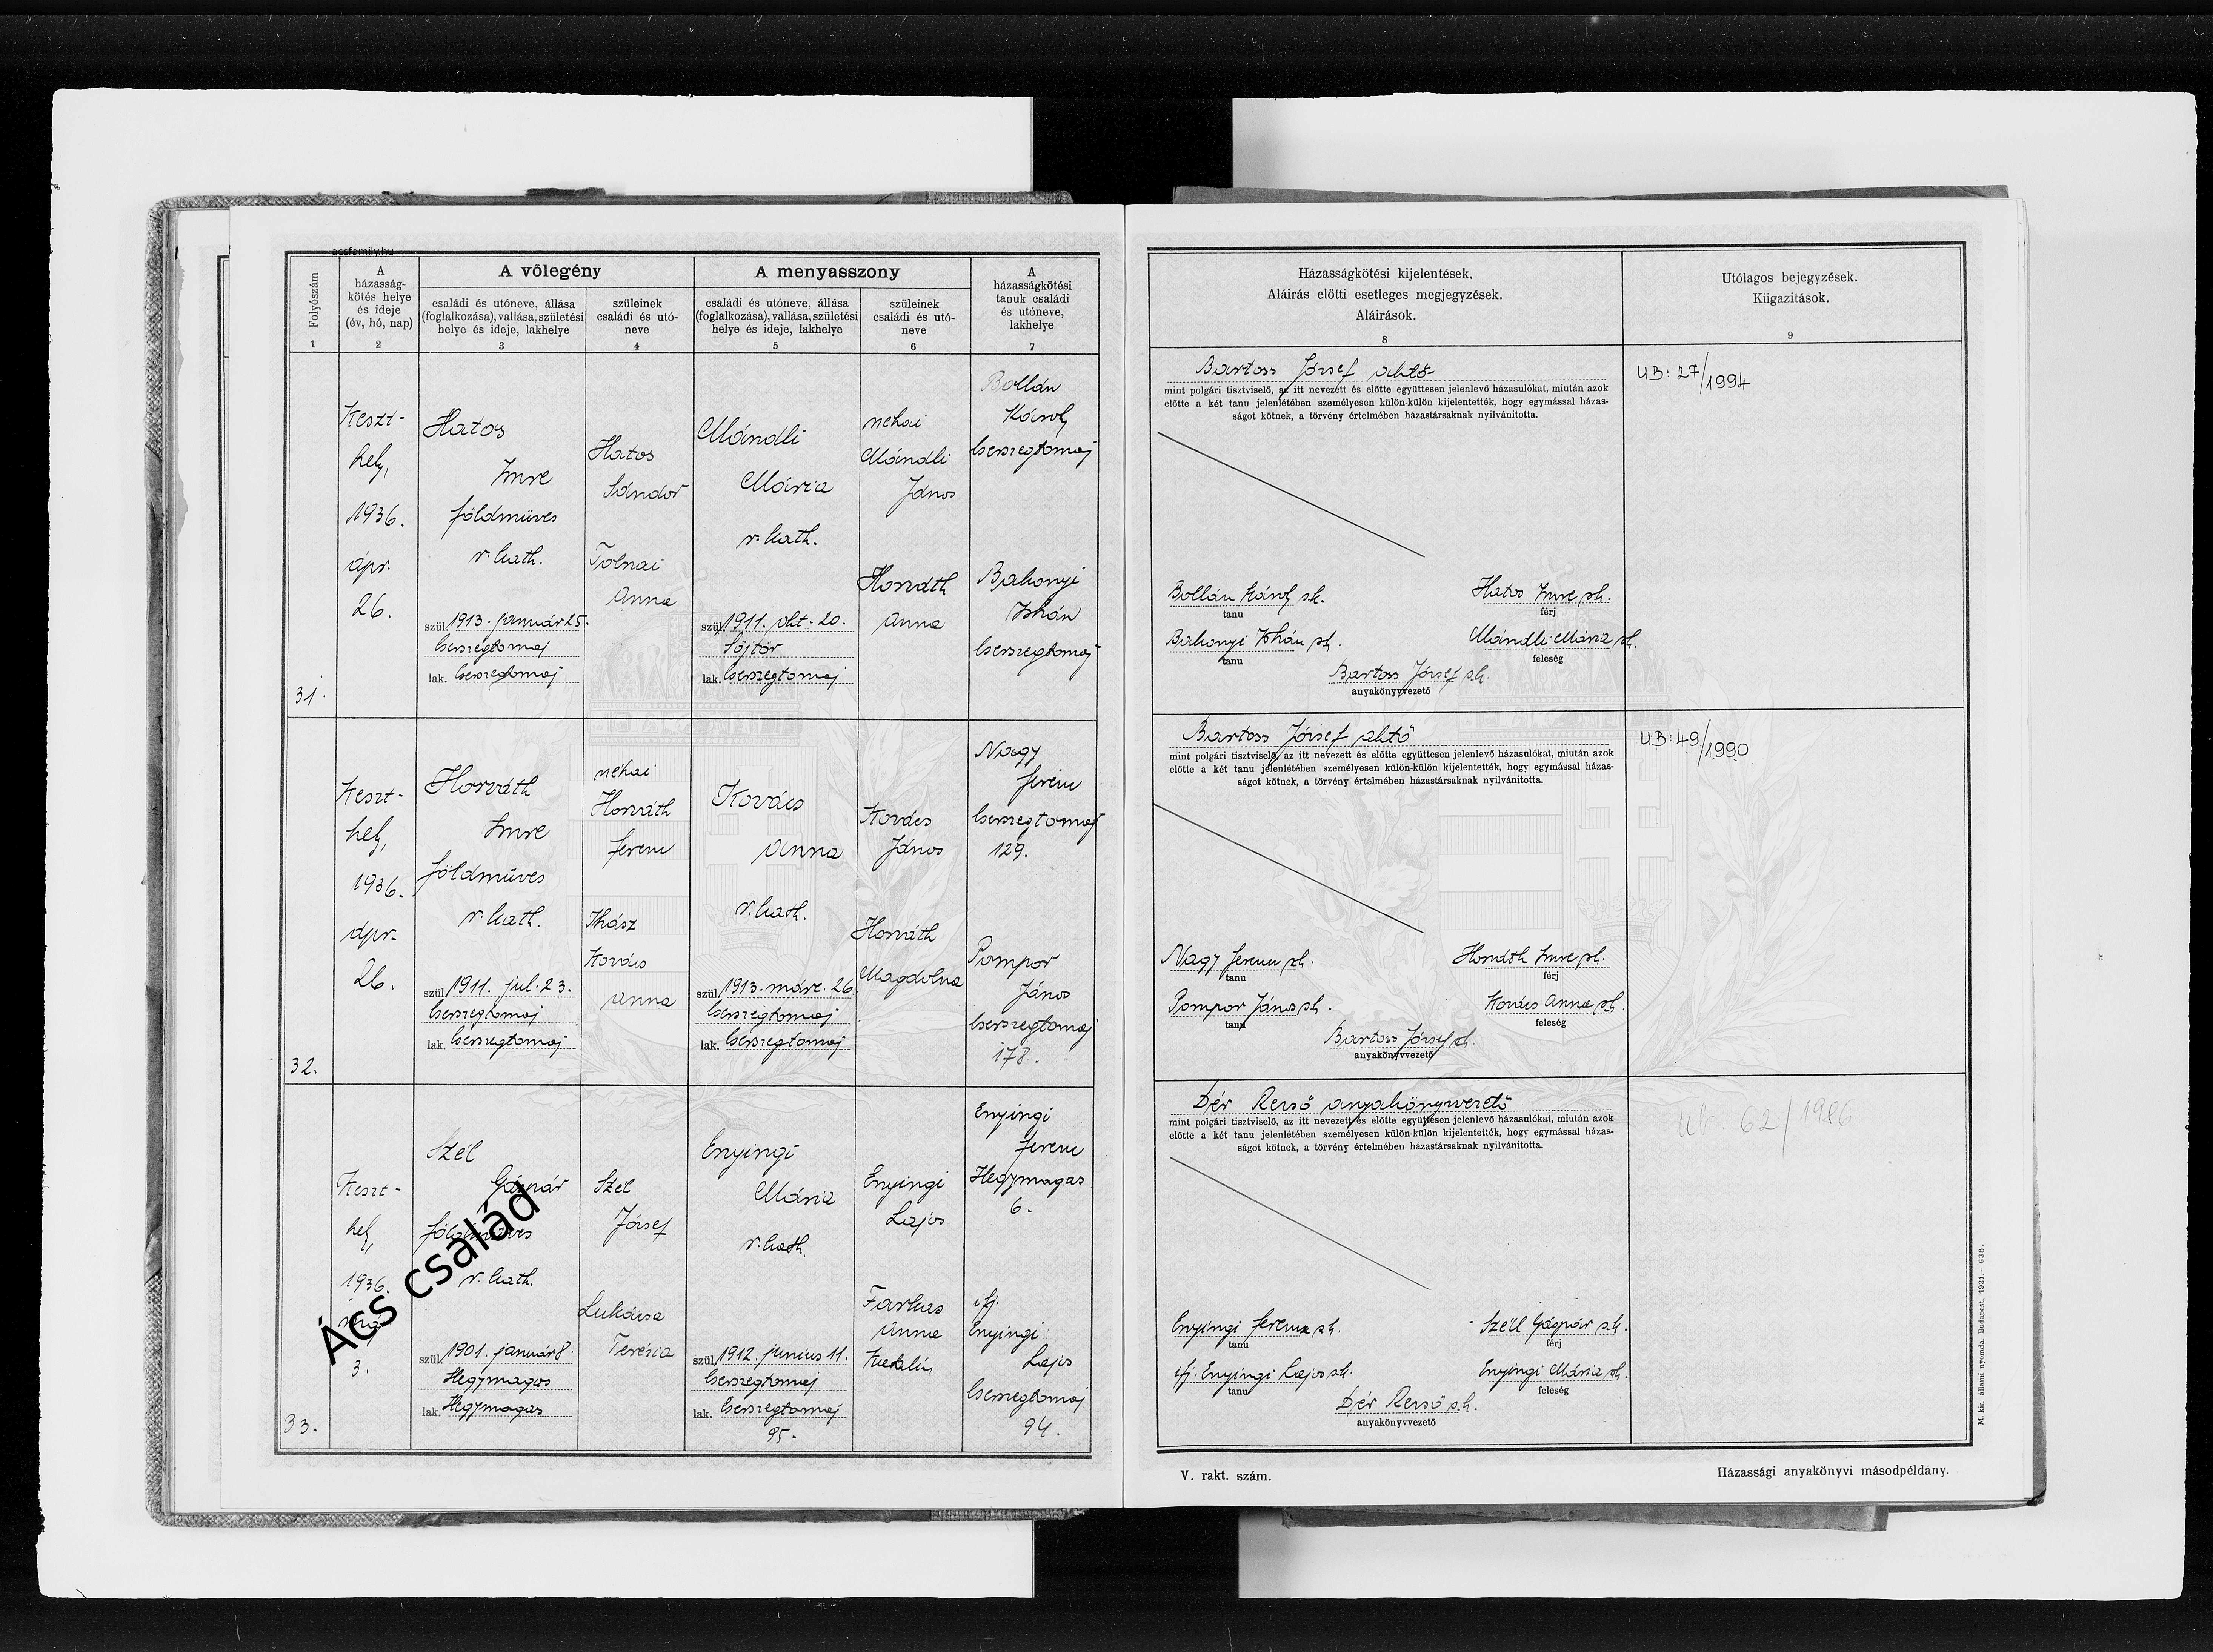 acsfamily.hu
Folyószám
1
A
házasság-
kötés helye
és ideje
(év, hó, nap)
2
A vőlegény
családi és utóneve, állása
(foglalkozása), vallása, születési
helye és ideje, lakhelye
3
szüleinek
családi és utó-
neve
4
A menyasszony
családi és utóneve, állása
(foglalkozása), vallása, születési
helye és ideje, lakhelye
5
szüleinek
családi és utó-
neve
6
A
házasságkötési
tanuk családi
és utóneve,
lakhelye
7
31.
Keszt-
hely,
1936.
ápr.
26.
Hatos
Imre
földműves
r. kath.
szül. 1913. január 25.
Cserszegtomaj
lak. Cserszegtomaj
Hatos
Sándor
Tolnai
Anna
Mándli
Mária
r. kath.
szül. 1911. okt. 20.
Söjtör
lak. Cserszegtomaj
néhai
Mándli
János
Horváth
Anna
Bollán
Károly
Cserszegtomaj
Bakonyi
István
Cserszegtomaj
32.
Keszt-
hely,
1936.
ápr.
26.
Horváth
Imre
földműves
r. kath.
szül. 1911. jul. 23.
Cserszegtomaj
lak. Cserszegtomaj
néhai
Horváth
Ferenc
Kovács
Anna
Kovács
Anna
r. kath.
szül. 1913. márc. 26.
Cserszegtomaj
lak. Cserszegtomaj
Kovács
János
Horváth
Magdolna
Nagy
Ferenc
Cserszegtomaj
129.
Pompor
János
Cserszegtomaj
178.
33.
Keszt-
hely,
1936.
3.
Szél
Gáspár
földműves
r. kath.
szül. 1901. január 8.
Hegymagas
lak. Hegymagas
Szél
József
Lukácsa
Terézia
Enyingi
Mária
r. kath.
szül. 1912. junius 11.
Cserszegtomaj
lak. Cserszegtomaj
95.
Enyingi
Lajos
Farkas
Anna
Katalin
Enyingi
Ferenc
Hegymagas
6.
ifj.
Enyingi
Lajos
Cserszegtomaj
94.
Ács család
Házasságkötési kijelentések.
Aláirás előtti esetleges megjegyzések.
Aláirások.
8
Utólagos bejegyzések.
Kiigazitások.
9
Bartoss József
mint polgári tisztviselő, az itt nevezett és előtte együttesen jelenlevő házasulókat, miután azok
előtte a két tanu jelenlétében személyesen külön-külön kijelentették, hogy egymással házas-
ságot kötnek, a törvény értelmében házastársaknak nyilvánitotta.
UB: 27/1994
Bollán Károly sk.
tanu
Hatos Imre sk.
férj
Bakonyi István sk.
tanu
Mándli Mária sk.
feleség
Bartoss József sk.
anyakönyvvezető
Bartoss József
mint polgári tisztviselő, az itt nevezett és előtte együttesen jelenlevő házasulókat, miután azok
előtte a két tanu jelenlétében személyesen külön-külön kijelentették, hogy egymással házas-
ságot kötnek, a törvény értelmében házastársaknak nyilvánitotta.
UB: 49/1990
Nagy Ferenc sk.
tanu
Horváth Imre sk.
férj
Pompor János sk.
tanu
Kovács Anna sk.
feleség
Bartoss József sk.
anyakönyvvezető
Dér Rezső anyakönyvvezető
mint polgári tisztviselő, az itt nevezett és előtte együttesen jelenlevő házasulókat, miután azok
előtte a két tanu jelenlétében személyesen külön-külön kijelentették, hogy egymással házas-
ságot kötnek, a törvény értelmében házastársaknak nyilvánitotta.
Ub 62/1986
Enyingi Ferenc sk.
tanu
Széll Gáspár s.k.
férj
ifj. Enyingi Lajos sk.
tanu
Enyingi Mária sk.
feleség
Dér Rezső s.k.
anyakönyvvezető
V. rakt. szám.
Házassági anyakönyvi másodpéldány.
M. kir. állami nyomda. Budapest. 1931. — 638.